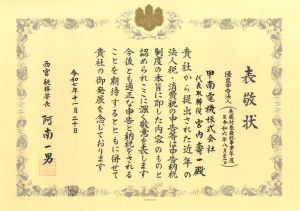 表敬状
優良申告法人
甲南電機株式会社
代表取締役 宮内壽一殿
貴社から提出された近年の
法人税・消費税の申告等は申告納税
制度の本旨に即した内容のものと
認められここに深く敬意を表します
今後とも適正な申告と納税をされる
ことを期待するとともに併せて
貴社の御発展を念じております
令和六年十一月二十日
西宮税務署長 阿南一男